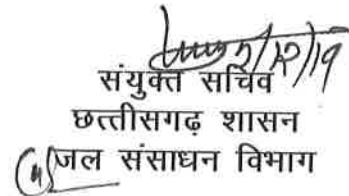 5/12/19
संयुक्त सचिव
छत्तीसगढ़ शासन
जल संसाधन विभाग